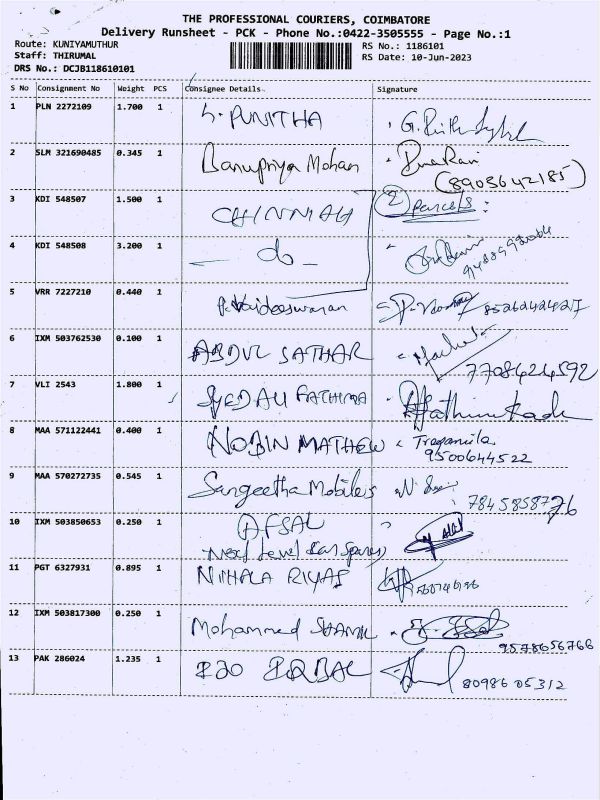 THE PROFESSIONAL COURIERS, COIMBATORE
Delivery Runsheet - PCK - Phone No.:0422-3505555 - Page No.:1
Route: KUNIYAMUTHUR RS No.: 1186101
Staff: THIRUMAL RS Date: 10-Jun-2023
DRS No.: DCJB118610101
S No Consignment No Weight PCS Consignee Details Signature
1 PLN 2272109 1.700 1 S. PUNITHA
2 SLM 321690485 0.345 1 Banupriya Mohan
(8903642185)
3 KDI 548507 1.500 1 CHINNIAH 2 parcels:
4 KDI 548508 3.200 1 - do -
5 VRR 7227210 0.440 1 P. Vaideeswaran 8526242427
6 IXM 503762530 0.100 1 ABDUL SATHAR
7708424592
7 VLI 2543 1.800 1 SYED ALI FATHIMA
8 MAA 571122441 0.400 1 NOBIN MATHEW
9500644522
9 MAA 570272735 0.545 1 Sangeetha Mobiles
7845858776
10 IXM 503850653 0.250 1 AFSAL
Next Level Car Spares
11 PGT 6327931 0.895 1 NIHALA RIYAS
12 IXM 503817300 0.250 1 Mohammed SHAMIL
9578656766
13 PAK 286024 1.235 1 IQBAL 8098605312